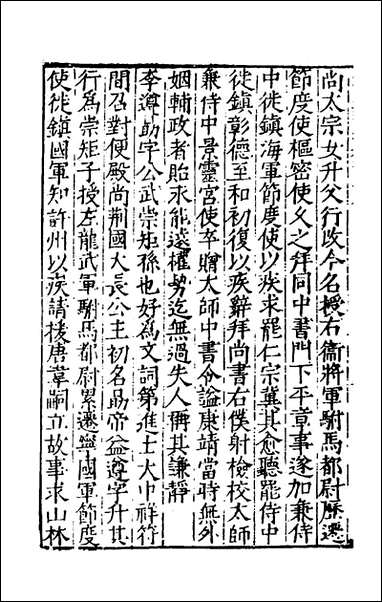 尚太宗女升父行改今名授右衞將軍駙馬都尉歷遷
節度使樞密使久之拜同中書門下平章事遂加兼侍
中徙鎮海軍節度使以疾求罷仁宗冀其愈聽罷侍中
徙鎮彰德至和初復以疾辭拜尚書右僕射檢校太師
兼侍中景靈宮使卒贈太師中書令諡康靖當時無外
姻輔政者貽求能遠權勢迄無過失人稱其謙靜
李遵勗字公武崇矩孫也好爲文詞第進士大中祥符
間召對便殿尚荆國大長公主初名勗帝益遵字升其
行爲崇矩子授左龍武軍駙馬都尉累遷寧國軍節度
使徙鎮國軍知許州以疾請援唐韋嗣立故事求山林